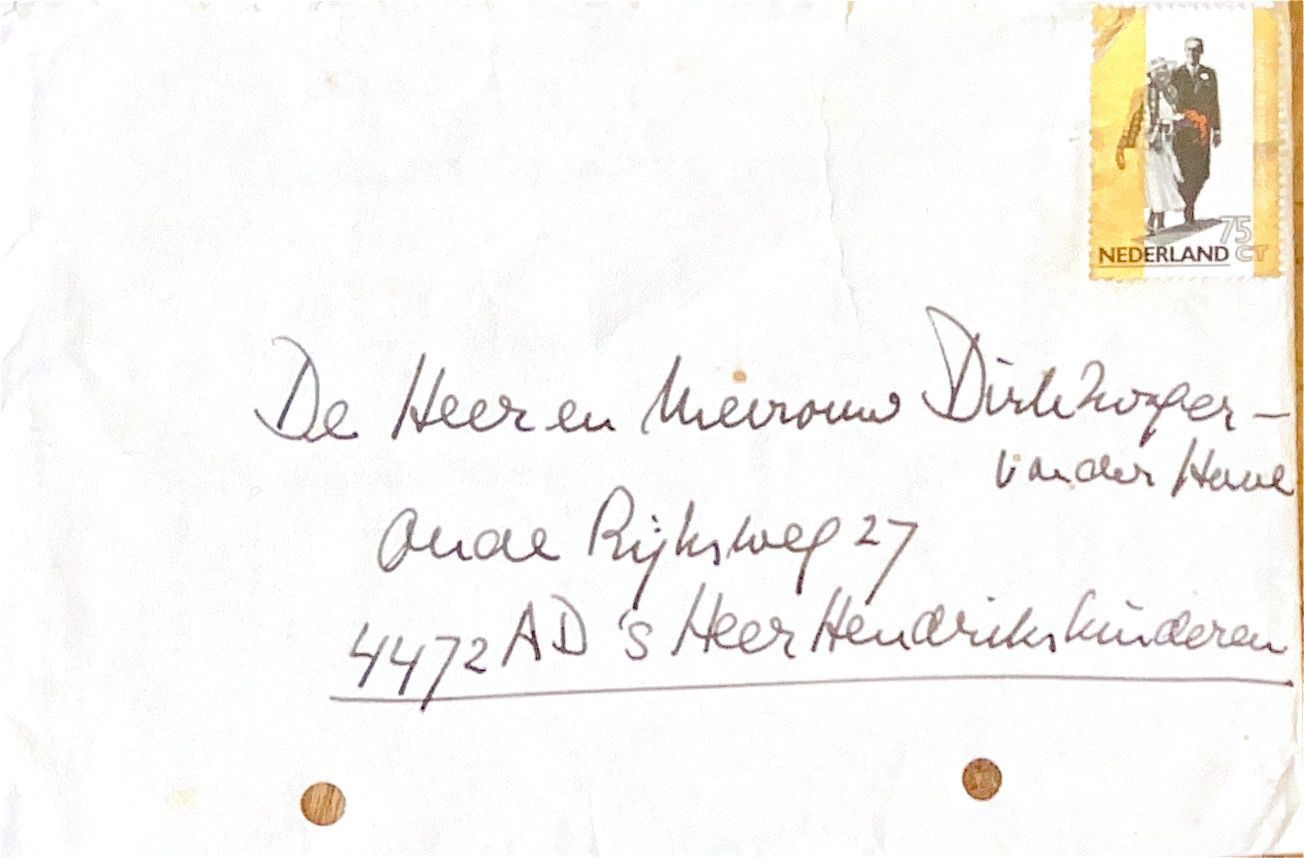 75
NEDERLAND CT
De Heer en Mevrouw Dirkzwager-
van der Have
Oude Rijksweg 27
4472 AD 's Heer Hendrikskinderen